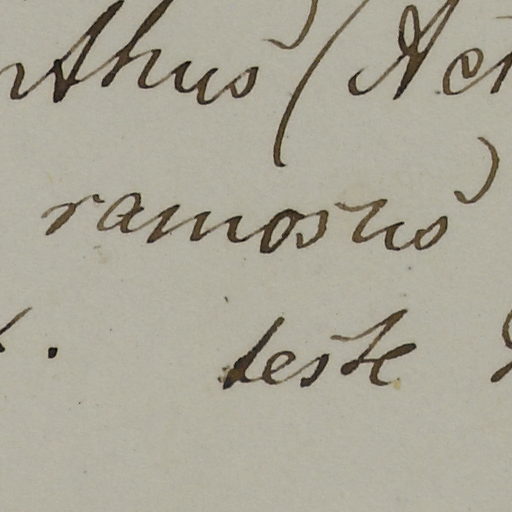 nthus (Act
ramosus)
. teste